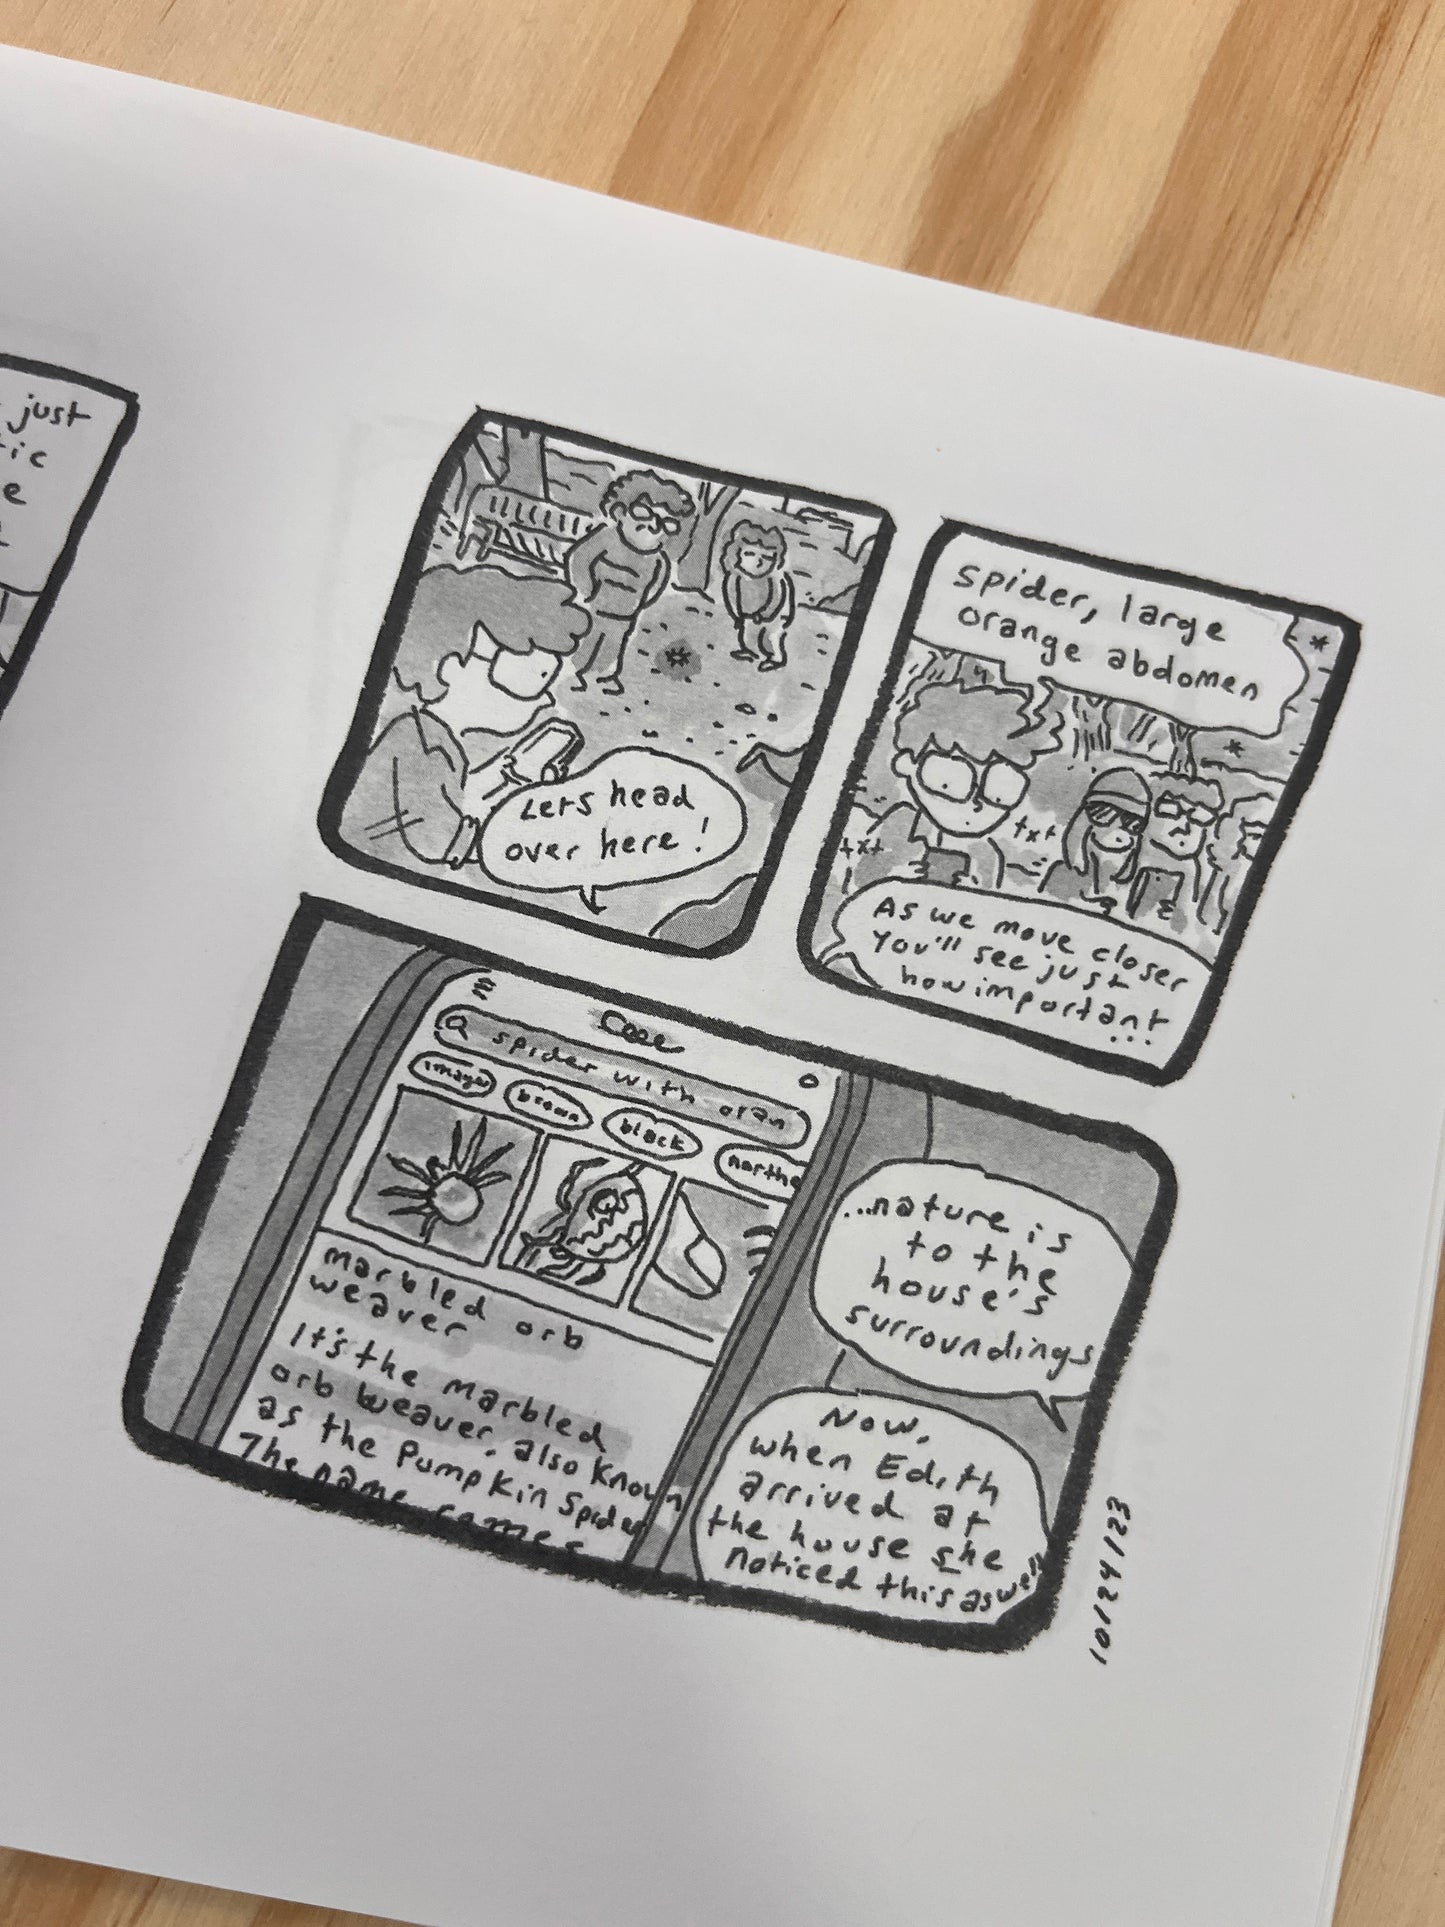 just
tic
e
Lets head
over here!
spider, large
orange abdomen
txt
txt
As we move closer
You'll see just
how important
...
spider with oran
images
brown
black
northe
marbled orb
weaver
It's the marbled
orb weaver, also known
as the Pumpkin Spider
The name comes
...nature is
to the
house's
surroundings
Now,
when Edith
arrived at
the house she
noticed this as well
10/24/23